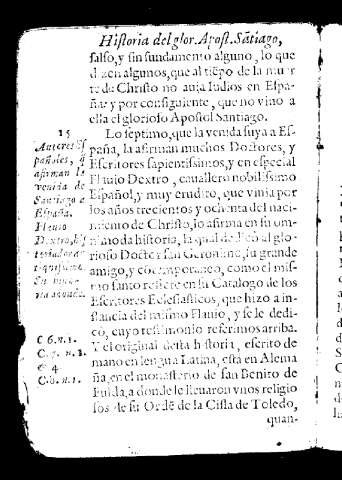 Historia del glor. Apost. Sãtiago,
falso, y sin fundamento alguno, lo que
dizen algunos, que al tiẽpo de la muer
te de Christo no auia Iudios en Espa-
ña: y por consiguiente, que no vino a
ella el glorioso Apostol Santiago.
Lo septimo, que la venida suya a Es-
paña, la afirman muchos Doctores, y
Escritores sapientissimos, y en especial
Flauio Dextro, cauallero nobilissimo
Español, y muy erudito, que viuia por
los años trecientos y ochenta del naci-
miento de Christo, lo afirma en su om-
nimoda historia, la qual dedicò al glo-
rioso Doctor San Geronimo, su grande
amigo, y cõtemporaneo, como el mis-
mo santo refiere en su Catalogo de los
Escritores Eclesiasticos, que hizo a in-
stancia del mismo Flauio, y se le dedi-
cò, cuyo testimonio referimos arriba.
Y el original desta historia, escrito de
mano en lengua Latina, està en Alema
ña, en el monasterio de san Benito de
Fulda, a donde le lleuaron vnos religio
sos de su Ordẽ de la Cisla de Toledo,
quan-
15
Autores Es
pañoles, q̃
afirman la
venida de
Santiago a
España.
Flauio
Dextro,
C 6. n. 1.
C. 7. n. 1.
& 4
C. 8. n. 1.